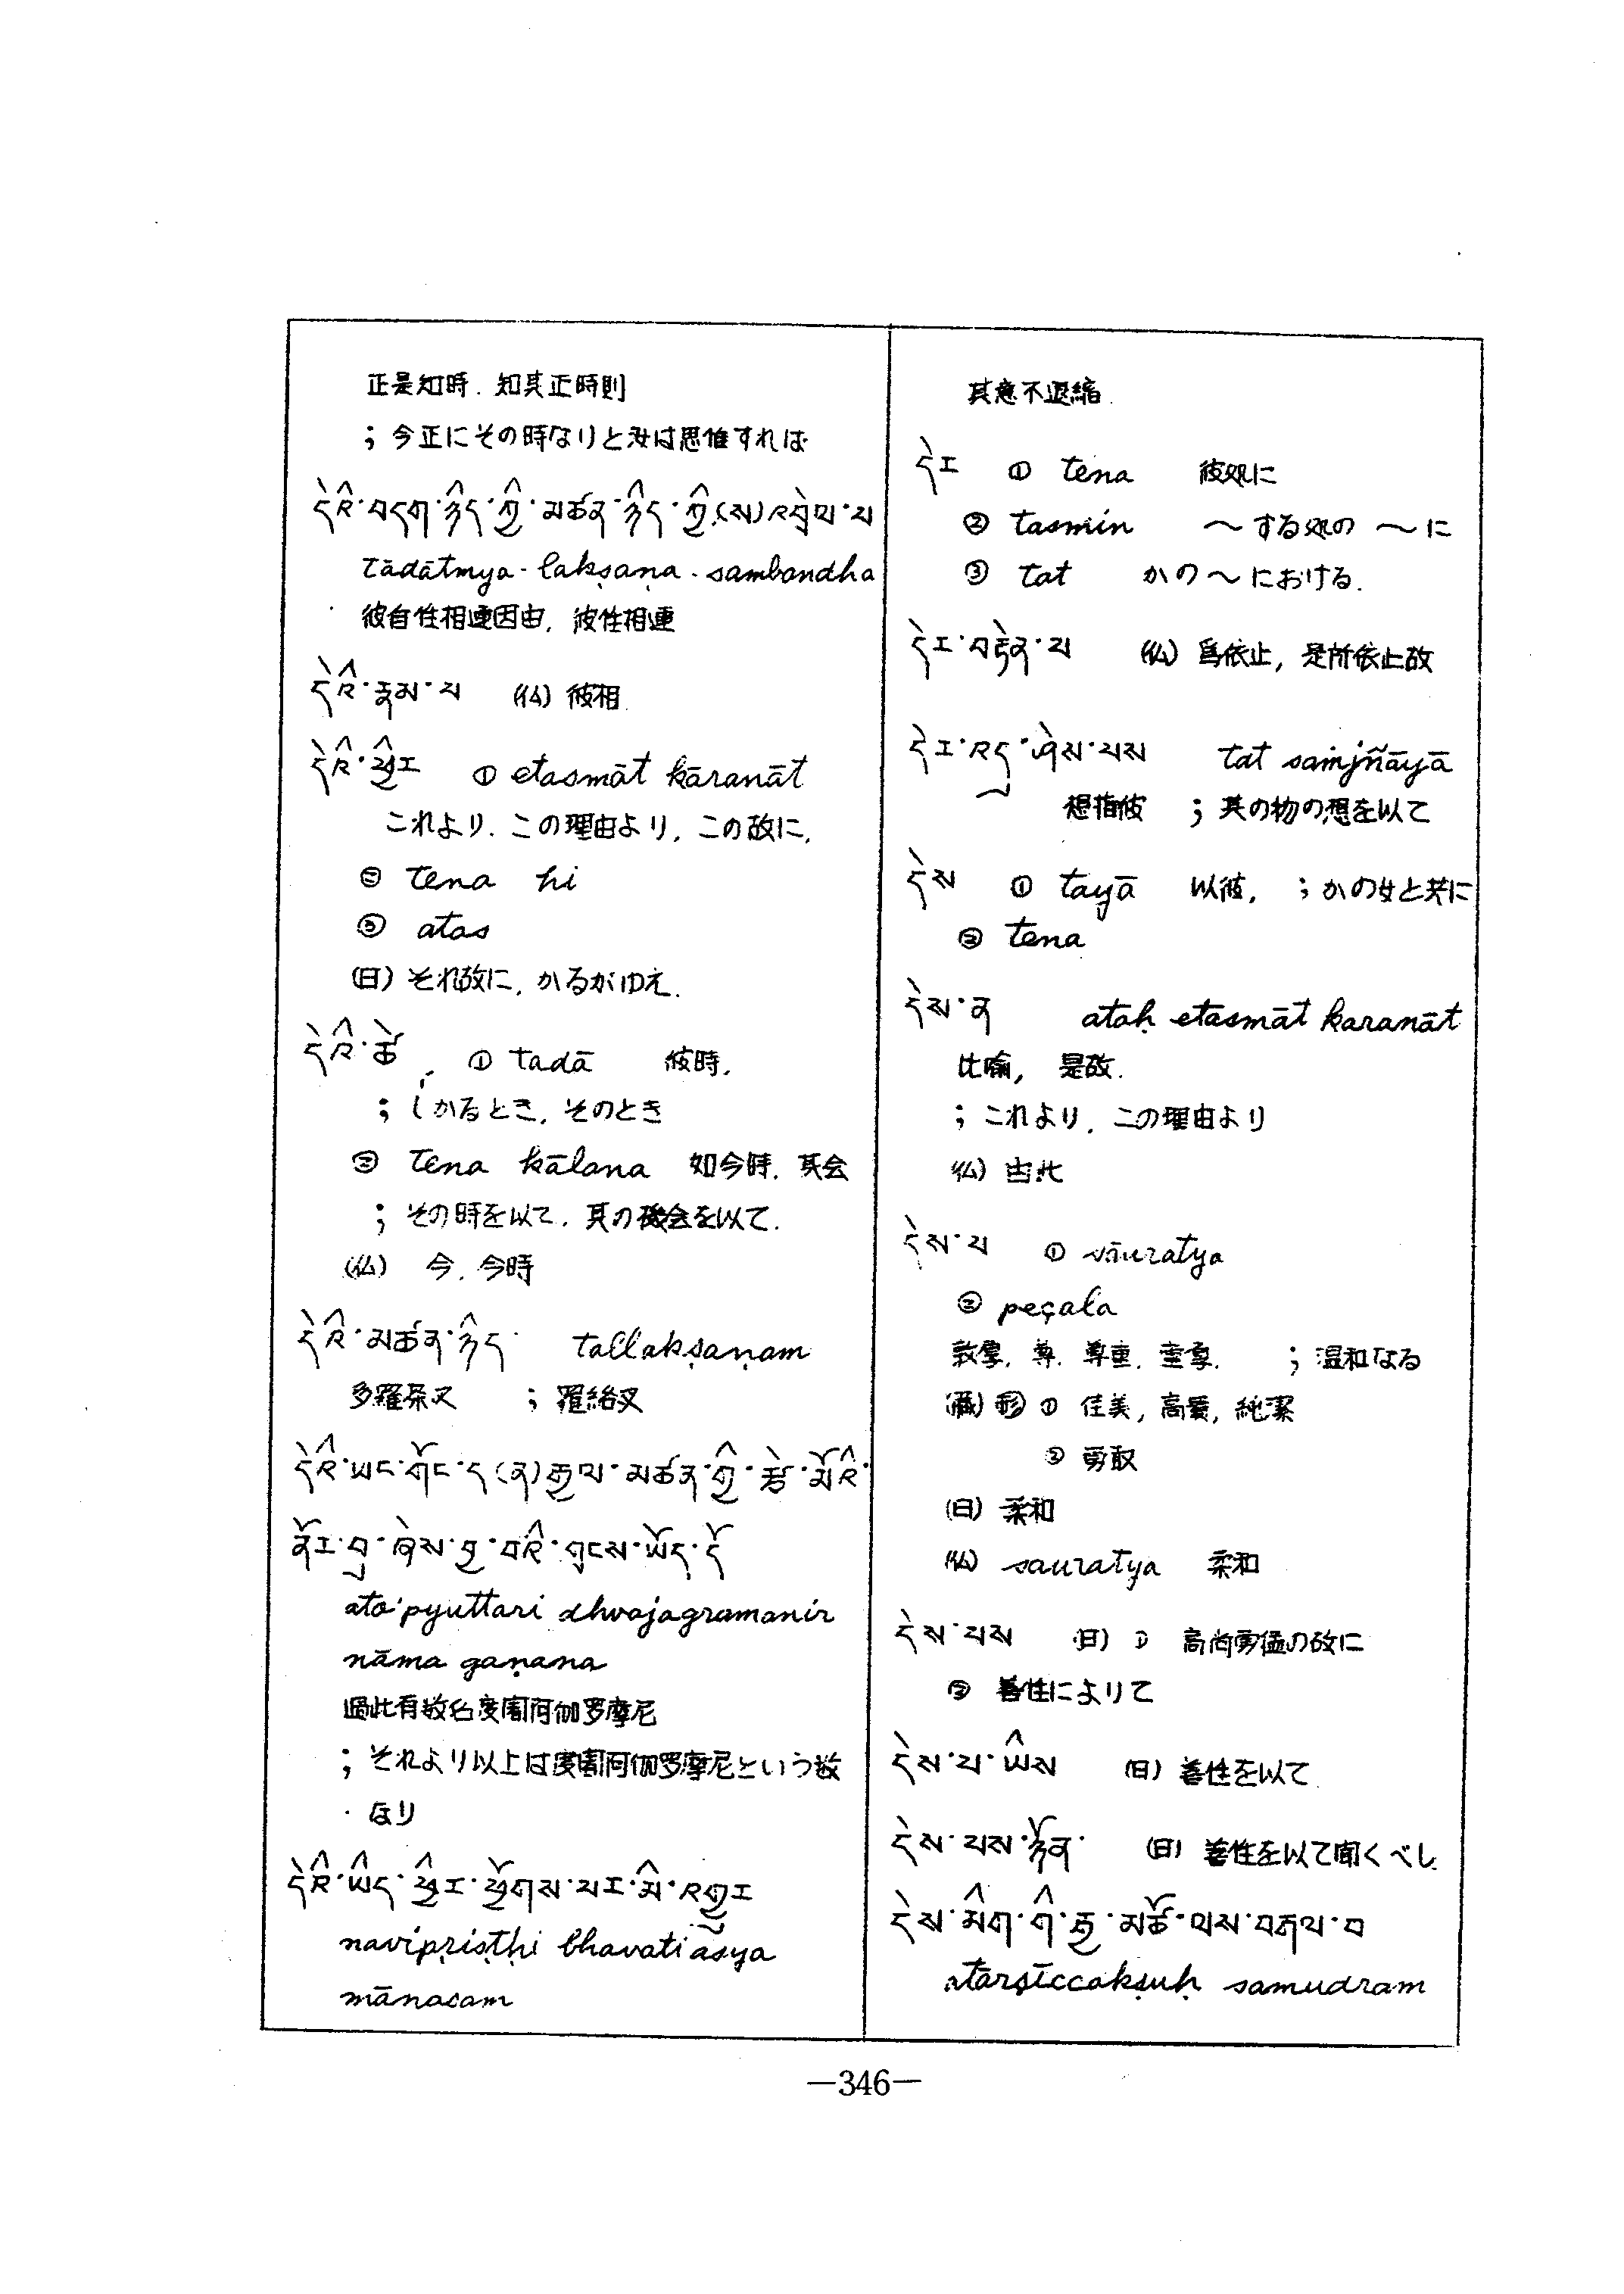 正是知時. 知其正時則
; 今正にその時なりと汝は思惟すれば
དེའི་བདག་ཉིད་ཀྱི་མཚན་ཉིད་ཀྱི་(ས)འབྲེལ་པ
tādātmya-lakṣaṇa-sambandha
彼自性相連因由, 彼性相連
དེའི་རྣམ་པ (仏) 彼相
དེའི་ཕྱིར ① etasmāt kāranāt
これより. この理由より, この故に,
② tena hi
③ atas
(日) それ故に, かるがゆえ.
དེའི་ཚེ ① tadā 彼時,
; しかるとき, そのとき
② tena kālana 如今時. 其会
; その時を以て, 其の機会を以て.
(仏) 今. 今時
དེའི་མཚན་ཉིད tallakṣaṇam
多羅叉 ; 羅絡叉
དེའི་ཡང་གོང་ད(ན)རྒྱལ་མཚན་གྱི་རྩེ་མོའི་
ནོར་བུ་ཞེས་བྱ་བའི་གྲངས་ཡོད་དོ
ato'pyuttari dhvajagramanir
nāma gaṇana
過此有数名度闍阿伽罗摩尼
; それより以上は度闍阿伽罗摩尼という数
なり
དེའི་ཡིད་ཕྱིར་ཕྱོགས་པར་མི་འགྱུར
navipṛiṣṭhi bhavati asya
mānasam
其意不退縮.
དེར ① tena 彼処に
② tasmin 〜する処の 〜に
③ tat かの〜における.
དེར་བརྟེན་པ (仏) 為依止, 是所依止故
དེར་འདུ་ཤེས་པས tat saṁjñāyā
想指彼 ; 其の物の想を以て
དེས ① tayā 以彼, ; かの女と共に
② tena
དེས་ན ataḥ etasmāt karanāt
比喩, 是故.
; これより, この理由より
(仏) 由此
དེས་པ ① sāuratya
② peçala
敦, 尊. 尊重. ; 温和なる
(蔵) 形 ① 佳美, 高貴, 純潔
② 勇敢
(日) 柔和
(仏) sauratya 柔和
དེས་པས (日) ① 高尚勇猛の故に
② 善性によりて
དེས་པ་ཡིས (日) 善性を以て
དེས་པས་ཉོན་ (日) 善性を以て聞くべし
དེས་མིག་གི་རྒྱ་མཚོ་ལས་བརྒལ་བ
atārṣīccakṣuḥ samudram
—346—